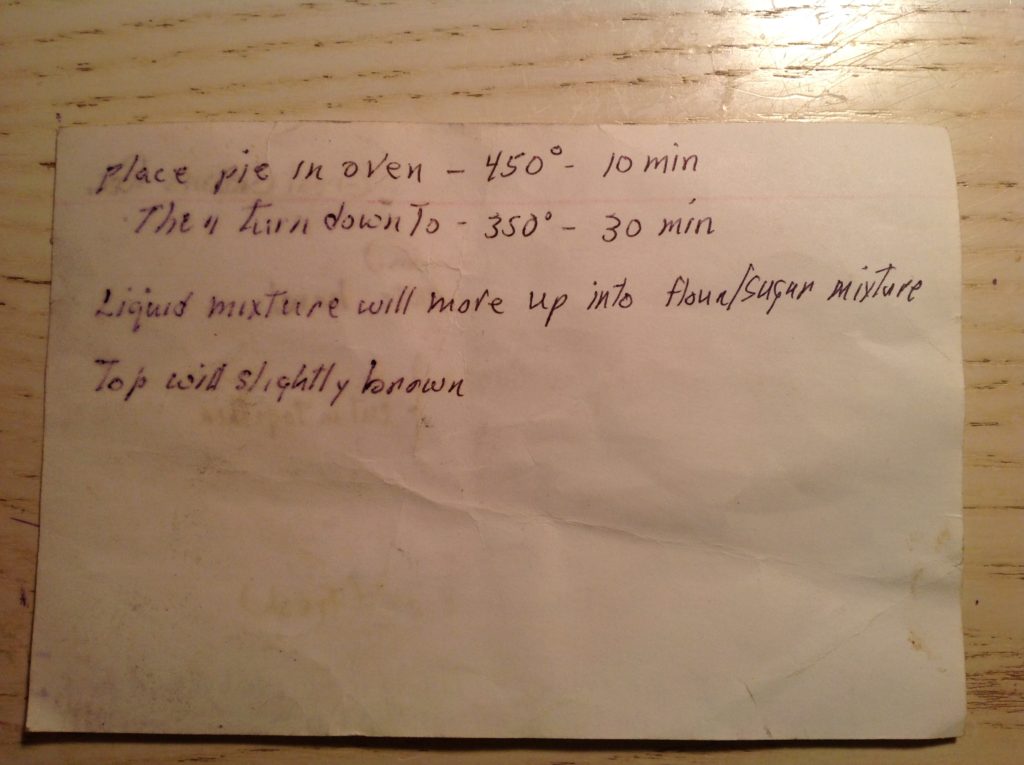 place pie in oven - 450° - 10 min
Then turn down To - 350° - 30 min
Liquid mixture will move up into flour/sugar mixture
Top will slightly brown